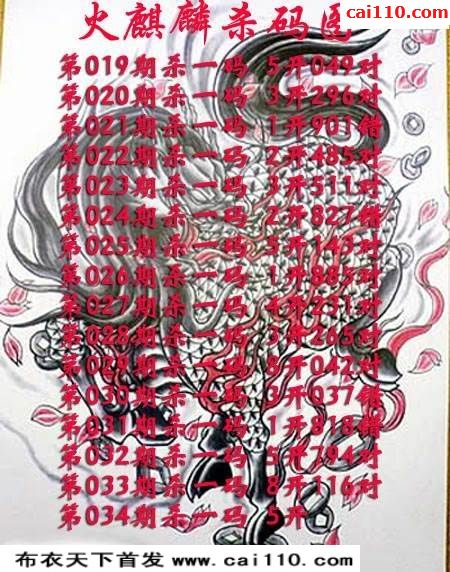 cai110.com
火麒麟杀码
第019期杀一码 5开049对
第020期杀一码 3开296对
第021期杀一码 1开901错
第022期杀一码 2开485对
第023期杀一码 3开511对
第024期杀一码 2开827错
第025期杀一码 5开143对
第026期杀一码 1开885对
第027期杀一码 4开231对
第028期杀一码 3开265对
第029期杀一码 8开042对
第030期杀一码 3开037错
第031期杀一码 1开818错
第032期杀一码 5开794对
第033期杀一码 8开116对
第034期杀一码 5开
布衣天下首发 www.cai110.com